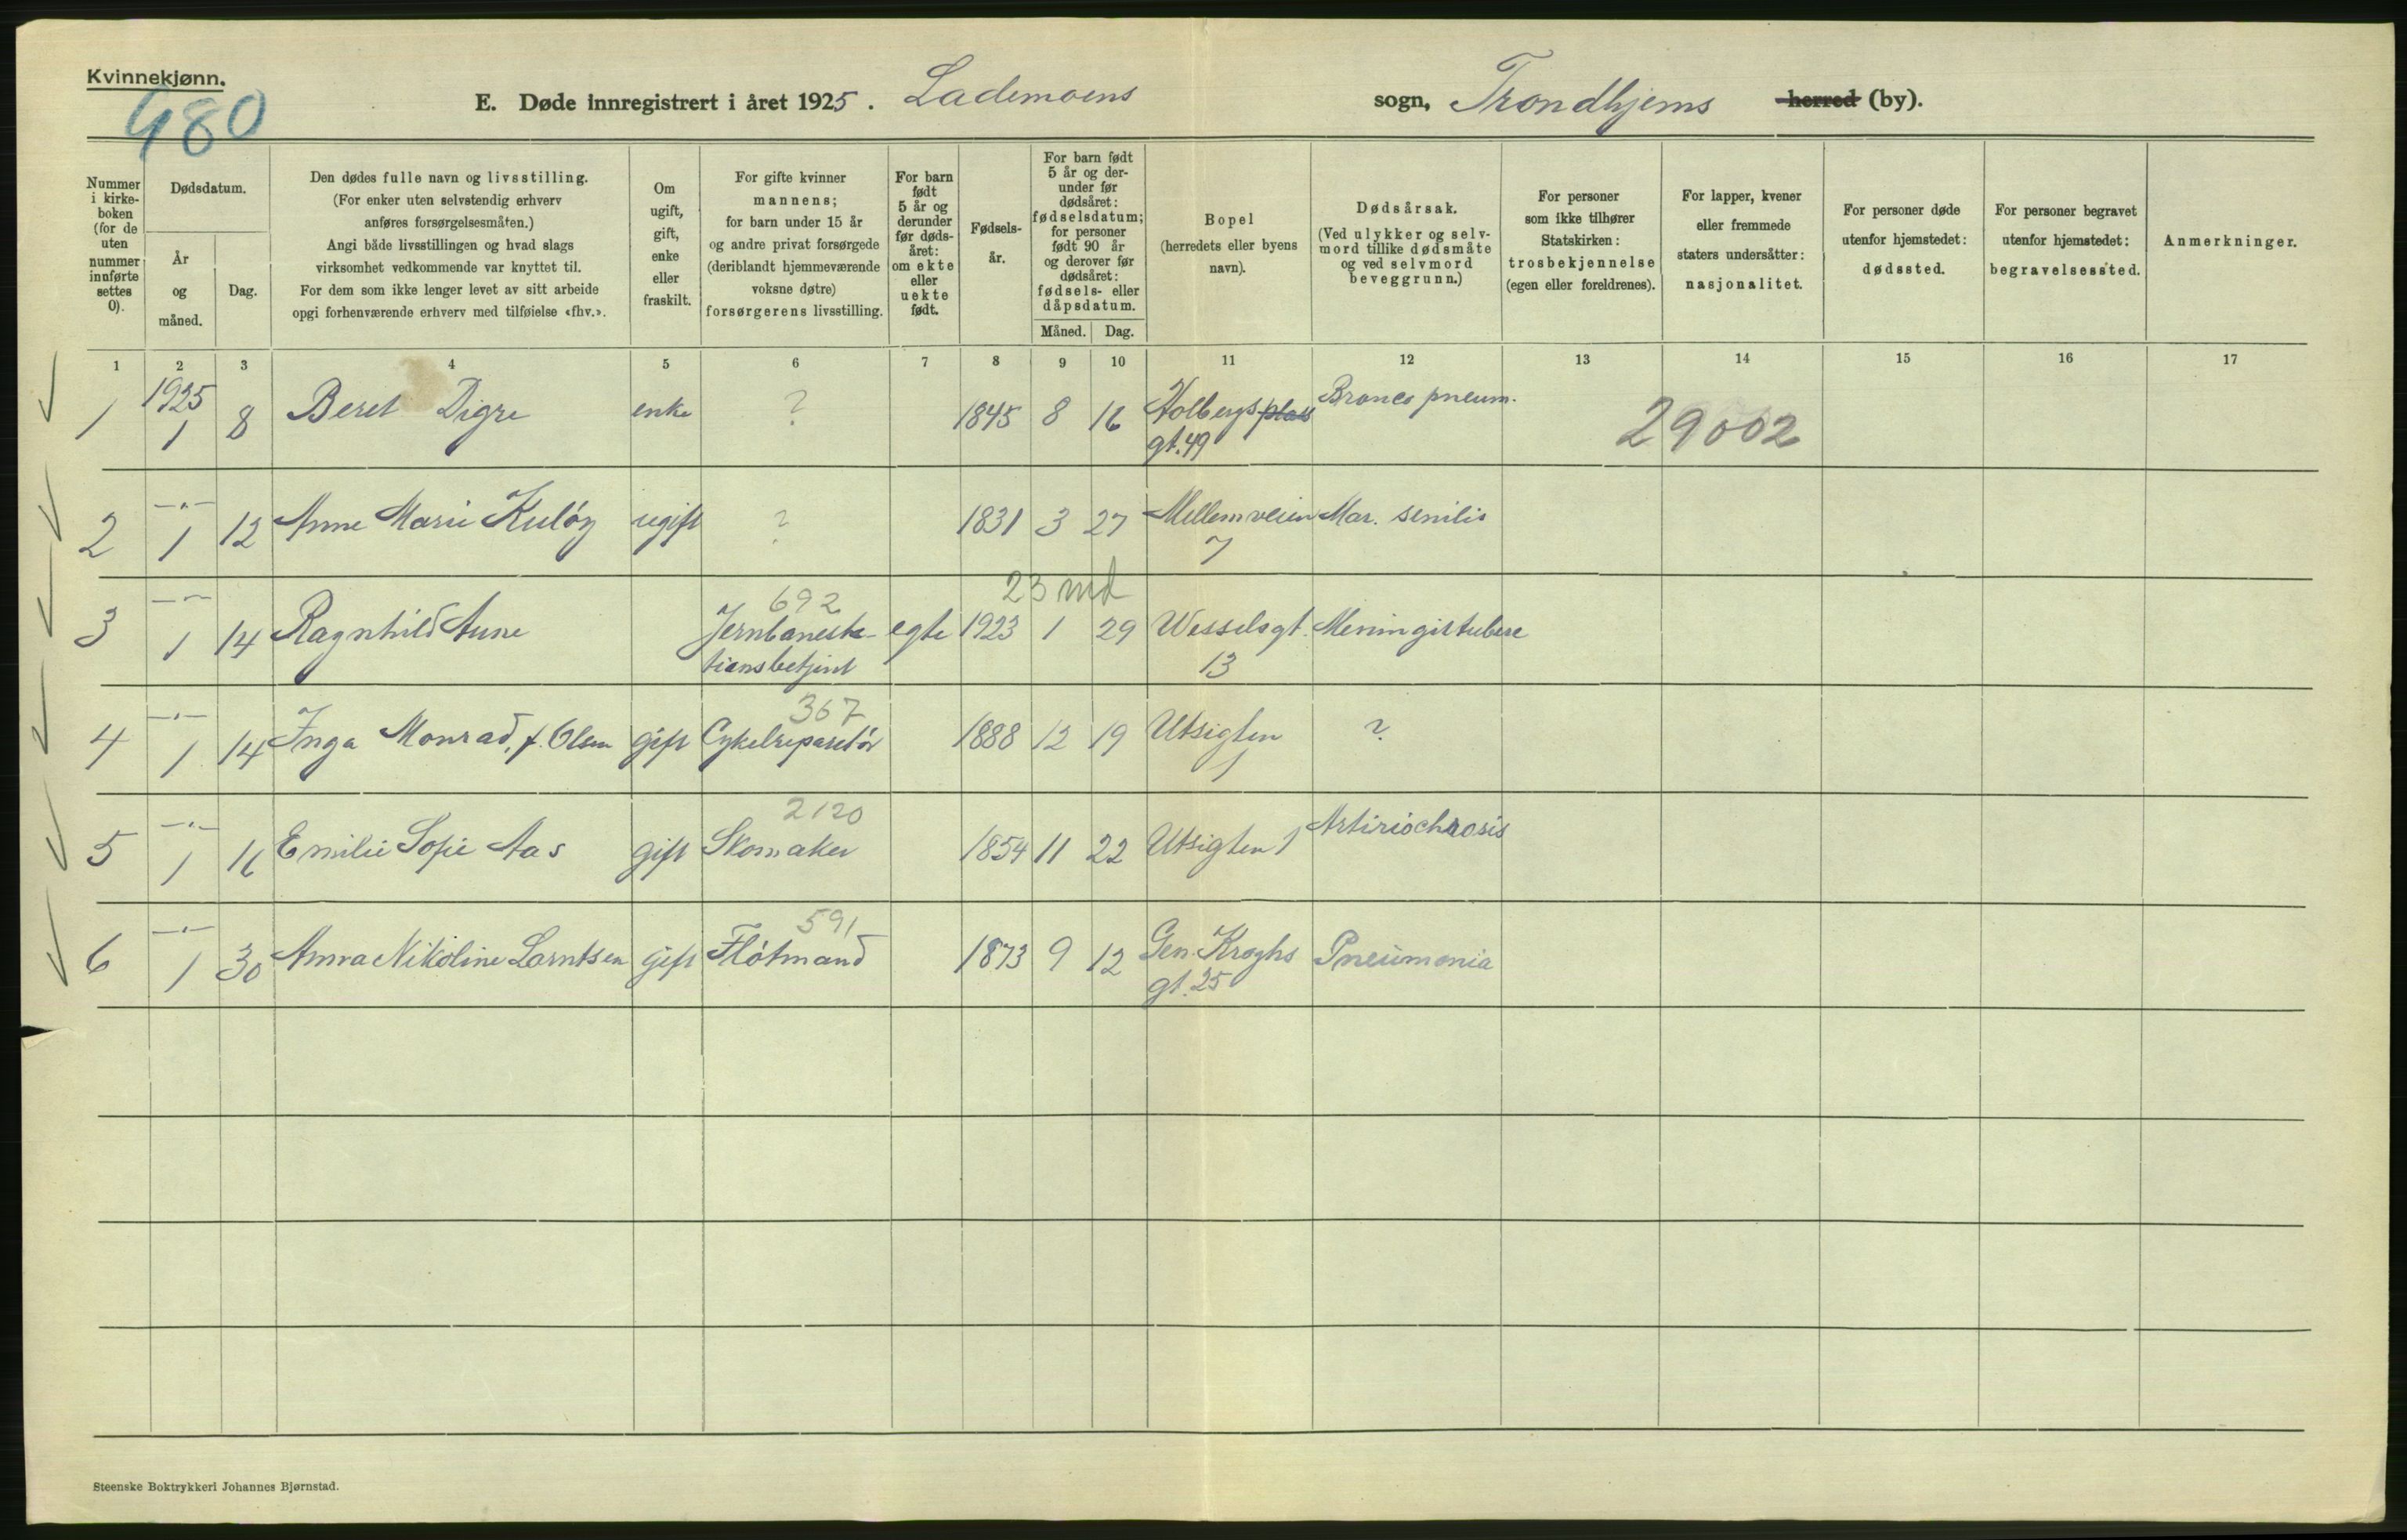 Kvinnekjønn.
480
E. Døde innregistrert i året 1925. Lademoens sogn, Trondhjems herred (by).
Nummer i kirke-boken (for de uten nummer innførte settes 0).
Dødsdatum.
År og måned.
Dag.
Den dødes fulle navn og livsstilling.
(For enker uten selvstendig erhverv
anføres forsørgelsesmåten.)
Angi både livsstillingen og hvad slags
virksomhet vedkommende var knyttet til.
For dem som ikke lenger levet av sitt arbeide
opgi forhenværende erhverv med tilføielse «fhv.».
Om
ugift,
gift,
enke
eller
fraskilt.
For gifte kvinner
mannens;
for barn under 15 år
og andre privat forsørgede
(deriblandt hjemmeværende
voksne døtre)
forsørgerens livsstilling.
For barn
født
5 år og
derunder
før døds-
året:
om ekte
eller
uekte
født.
Fødsels-
år.
For barn født
5 år og der-
under før
dødsåret:
fødselsdatum;
for personer
født 90 år
og derover før
dødsåret:
fødsels- eller
dåpsdatum.
Måned. Dag.
Bopel
(herredets eller byens
navn).
Dødsårsak.
(Ved ulykker og selv-
mord tillike dødsmåte
og ved selvmord
beveggrunn.)
For personer
som ikke tilhører
Statskirken:
trosbekjennelse
(egen eller foreldrenes).
For lapper, kvener
eller fremmede
staters undersåtter:
nasjonalitet.
For personer døde
utenfor hjemstedet:
dødssted.
For personer begravet
utenfor hjemstedet:
begravelsessted.
Anmerkninger.
1 2 3 4 5 6 7 8 9 10 11 12 13 14 15 16 17
1925
1 1 8 Beret Digre enke ? 1845 8 16 Holbergs plass Bronco pneum.
gt. 49
29002
2 —"— 1 12 Anne Marie Kuløy ugift ? 1831 3 27 Mellemveien Mar. senilis
7
692 23 md
3 —"— 1 14 Ragnhild Aune Jernbanesta- egte 1923 1 29 Wesselsgt. Meningit tuberc
tionsbetjent 13
367
4 —"— 1 14 Inga Monrad, f. Olsen gift Cykelreparatør 1888 12 19 Utsigten ?
1
2120
5 —"— 1 16 Emilie Sofie Aas gift Skomaker 1854 11 22 Utsigten 1 Artiriochrosis
591
6 —"— 1 30 Anna Nikoline Lorntsen gift Fløtmand 1873 9 12 Gen. Kroghs Pneumonia
gt. 25
Steenske Boktrykkeri Johannes Bjørnstad.